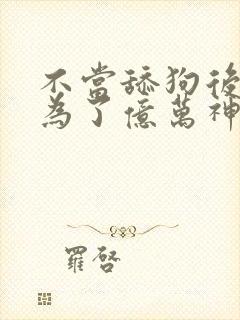 不當舔狗後
為了億萬神
羅啓